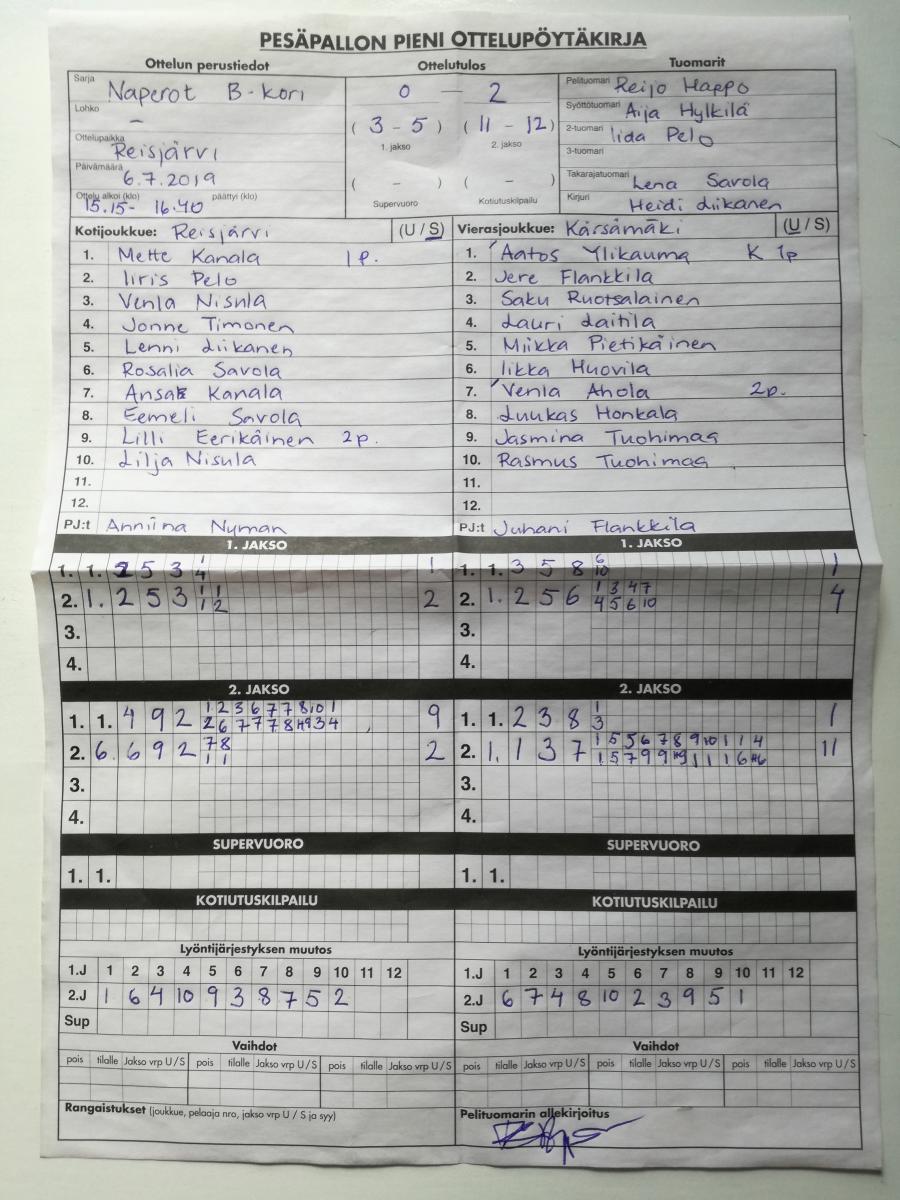 PESÄPALLON PIENI OTTELUPÖYTÄKIRJA
Ottelun perustiedot Ottelutulos Tuomarit
Sarja Naperot B-kori
Lohko –
Ottelupaikka Reisjärvi
Päivämäärä 6.7.2019
Ottelu alkoi (klo) 15.15- päättyi (klo) 16.40
0 — 2
( 3 - 5 ) ( 11 - 12 )
1. jakso 2. jakso
( - ) ( - )
Supervuoro Kotiutuskilpailu
Pelituomari Reijo Happo
Syöttötuomari Aija Hylkilä
2-tuomari Iida Pelo
3-tuomari
Takarajatuomari Lena Savola
Kirjuri Heidi Liikanen
Kotijoukkue: Reisjärvi (U / S)
1. Mette Kanala 1p.
2. Iiris Pelo
3. Venla Nisula
4. Jonne Timonen
5. Lenni Liikanen
6. Rosalia Savola
7. Kanala
8. Eemeli Savola
9. Lilli Eerikäinen 2p.
10. Lilja Nisula
11.
12.
PJ:t Anniina Nyman
Vierasjoukkue: Kärsämäki (U / S)
1. Aatos Ylikauma K 1p
2. Jere Flankkila
3. Saku Ruotsalainen
4. Lauri Laitila
5. Miikka Pietikäinen
6. Iikka Huovila
7. Venla Ahola 2p.
8. Luukas Honkala
9. Jasmina Tuohimaa
10. Rasmus Tuohimaa
11.
12.
PJ:t Juhani Flankkila
1. JAKSO
1. 1. 2 5 3 1 1
4
2. 1. 2 5 3 1 1 2
1 2
3.
4.
1. JAKSO
1. 1. 3 5 8 6 1
10
2. 1. 2 5 6 1 3 4 7 4
4 5 6 10
3.
4.
2. JAKSO
1. 1. 4 9 2 1 2 3 6 7 7 8 10 1 9
2 6 7 7 7 8 3 4
2. 6. 6 9 2 7 8 2
1 1
3.
4.
2. JAKSO
1. 1. 2 3 8 1 1
3
2. 1. 1 3 7 1 5 5 6 7 8 9 10 1 1 4 11
1 5 7 9 9 1 1 1 6
3.
4.
SUPERVUORO
1. 1.
SUPERVUORO
1. 1.
KOTIUTUSKILPAILU
KOTIUTUSKILPAILU
Lyöntijärjestyksen muutos
1.J 1 2 3 4 5 6 7 8 9 10 11 12
2.J 1 6 4 10 9 3 8 7 5 2
Sup
Lyöntijärjestyksen muutos
1.J 1 2 3 4 5 6 7 8 9 10 11 12
2.J 6 7 4 8 10 2 3 9 5 1
Sup
Vaihdot
pois tilalle Jakso vrp U / S pois tilalle Jakso vrp U / S pois tilalle Jakso vrp U / S
Vaihdot
pois tilalle Jakso vrp U / S pois tilalle Jakso vrp U / S pois tilalle Jakso vrp U / S
Rangaistukset (joukkue, pelaaja nro, jakso vrp U / S ja syy)
Pelituomarin allekirjoitus